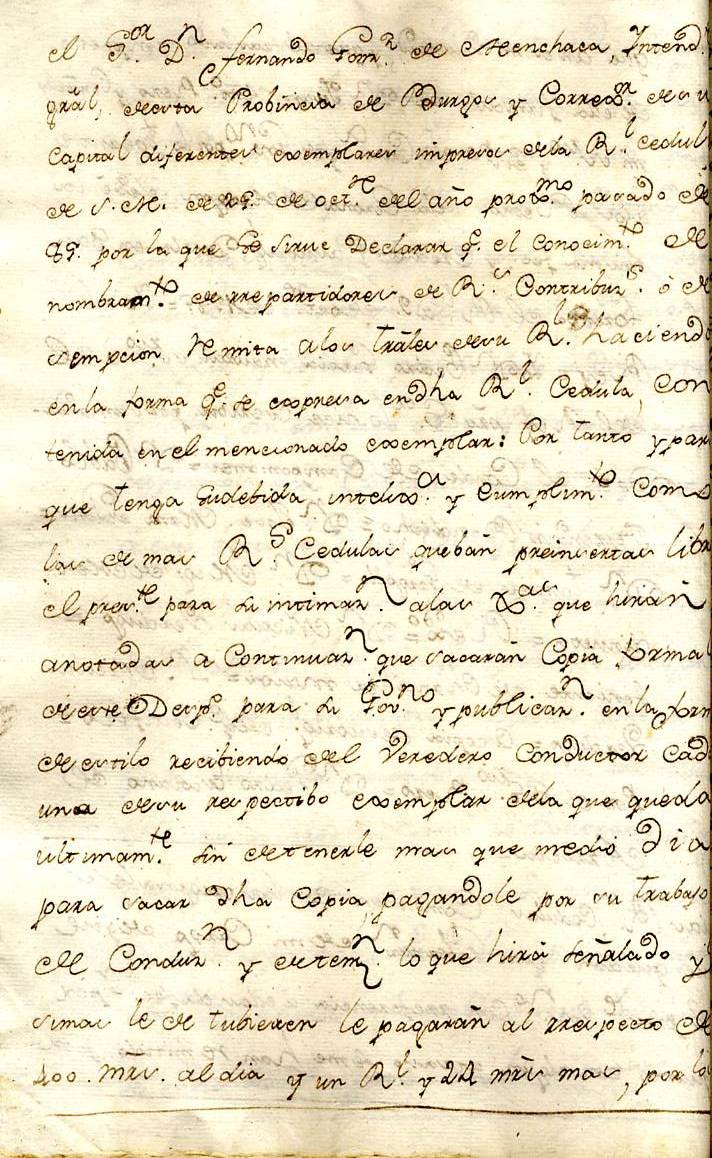 el S.or D.n fernando Gom.z de Menchaca, Intend.
gral, de esta Probincia de Burgos y Corre.or de su
Capital diferentes exemplares impresos de la R.l cedul
de S. M. de 25. de oct.re del año proxo.mo pasado de
85. por la que Se sirve Declarar q.e el conocim.to de
nombram.to de rrepartidores de R.s Contribuz.s ó de
sempcion remita a los trãles de su R.l haciend
en la forma q.e se expresa en dha R.l Cedula, con
tenida en el mencionado exemplar: Por tanto y par
que tenga su debida intelix.a y Cumplim.to como
las de mas R.s Cedulas que bán preinsertas libr
el pres.te para su intimaz.n a las xx.as que hirán
anotadas a Continuaz.n que sacarán Copia forma
de este Desp.o para su Gov.no y publicaz.n en la form
de estilo recibiendo del Veredero Conductor cad
una de su respectibo exemplar de la que queda
ultimam.te sin detenerle mas que medio dia
para sacar dha Copia, pagandole por su trabajo
de Conduz.n y exten.n lo que hirá señalado y
si mas le de tubieren le pagarán al rrespecto de
400. mrs. al dia y un R.l y 22 mrs mas, por lo